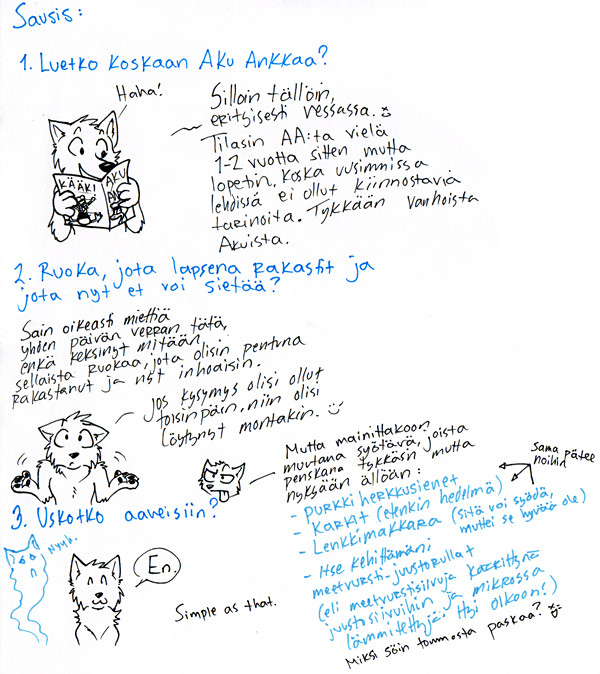 Sausis:
1. Luetko koskaan Aku Ankkaa?
Haha!
KÄÄK!
AKU
Silloin tällöin,
erityisesti vessassa.
Tilasin AA:ta vielä
1-2 vuotta sitten mutta
lopetin, koska uusimmissa
lehdissä ei ollut kiinnostavia
tarinoita. Tykkään vanhoista
Akuista.
2. Ruoka, jota lapsena rakastit ja
jota nyt et voi sietää?
Sain oikeasti miettiä
yhden päivän verran tätä,
enkä keksinyt mitään
sellaista ruokaa, jota olisin pentuna
rakastanut ja nyt inhoaisin.
Jos kysymys olisi ollut
toisinpäin, niin olisi
löytynyt montakin.
Mutta mainittakoon
muutama syötävä, joista
penskana tykkäsin mutta
nykyään ällöän:
- Purkkiherkkusienet
- Karkit (etenkin hedelmä)
- Lenkkimakkara (sitä voi syödä,
muttei se hyvää ole)
Sama pätee
noihin
- Itse kehittämäni
meetvursti-juustorullat
(eli meetvurstisiivuja käärittynä
juustosiivuihin ja mikrossa
lämmitettyjä. Hyi olkoon!)
Miksi söin tommosta paskaa?
3. Uskotko aaveisiin?
Nyyh.
En.
Simple as that.